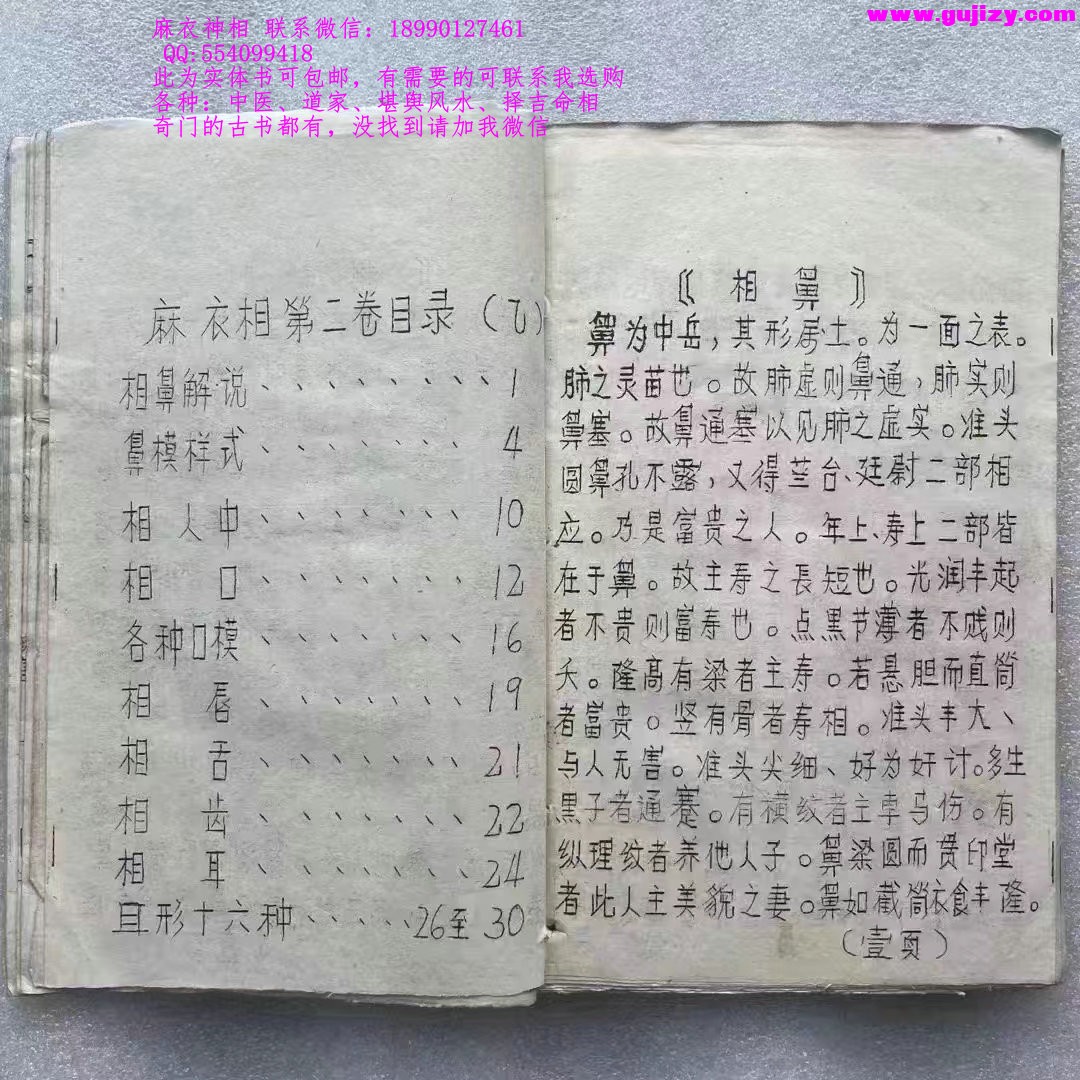 www.gujizy.com
麻衣神相 联系微信：18990127461
QQ:554099418
此为实体书可包邮，有需要的可联系我选购
各种：中医、道家、堪舆风水、择吉命相
奇门的古书都有，没找到请加我微信
麻衣相第二卷目录（乙）
相鼻解说、、、、、、、、1
鼻模样式、、、、、、4
相人中、、、、、、、10
相 口、、、、、、、12
各种口模、、、、、、、16
相 唇、、、、、、、19
相 舌、、、、、、、21
相 齿、、、、、、、22
相 耳、、、、、、、24
耳形十六种·····26至30
《相鼻》
鼻为中岳，其形属土。为一面之表。
肺之灵苗也。故肺虚则鼻通，肺实则
鼻塞。故鼻通塞以见肺之虚实。准头
圆鼻孔不露，又得兰台、廷尉二部相
应。乃是富贵之人。年上、寿上二部皆
在于鼻。故主寿之長短也。光润丰起
者不贵则富寿也。点黑节薄者不贱则
夭。隆高有梁者主寿。若悬胆而直筒
者富贵。竖有骨者寿相。准头丰大、
与人无害。准头尖细、好为奸计。多生
黑子者通蹇。有横纹者主車马伤。有
纵理纹者养他人子。鼻梁圆而贯印堂
者此人主美貌之妻。鼻如截筒衣食丰隆。
（壹页）